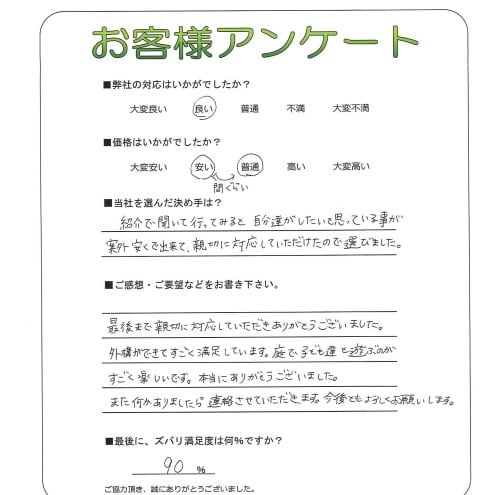 お客様アンケート
■弊社の対応はいかがでしたか？
大変良い 良い 普通 不満 大変不満
■価格はいかがでしたか？
大変安い 安い 普通 高い 大変高い
間ぐらい
■当社を選んだ決め手は？
紹介で聞いて行ってみると 自分達がしたいと思っている事が
案外 安くで出来て、親切に対応していただけたので選びました。
■ご感想・ご要望などをお書き下さい。
最後まで親切に対応していただきありがとうございました。
外構ができてすごく満足しています。庭で、子ども達と遊ぶのが
すごく楽しいです。本当にありがとうございました。
また何かありましたら連絡させていただきます。今後ともよろしくお願いします。
■最後に、ズバリ満足度は何%ですか？
90 %
ご協力頂き、誠にありがとうございました。